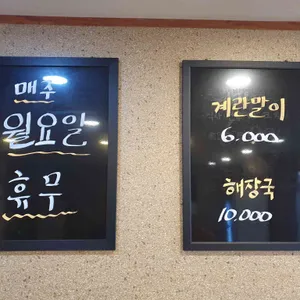 매주
월요일
휴무
계란말이
6.000
해장국
10.000